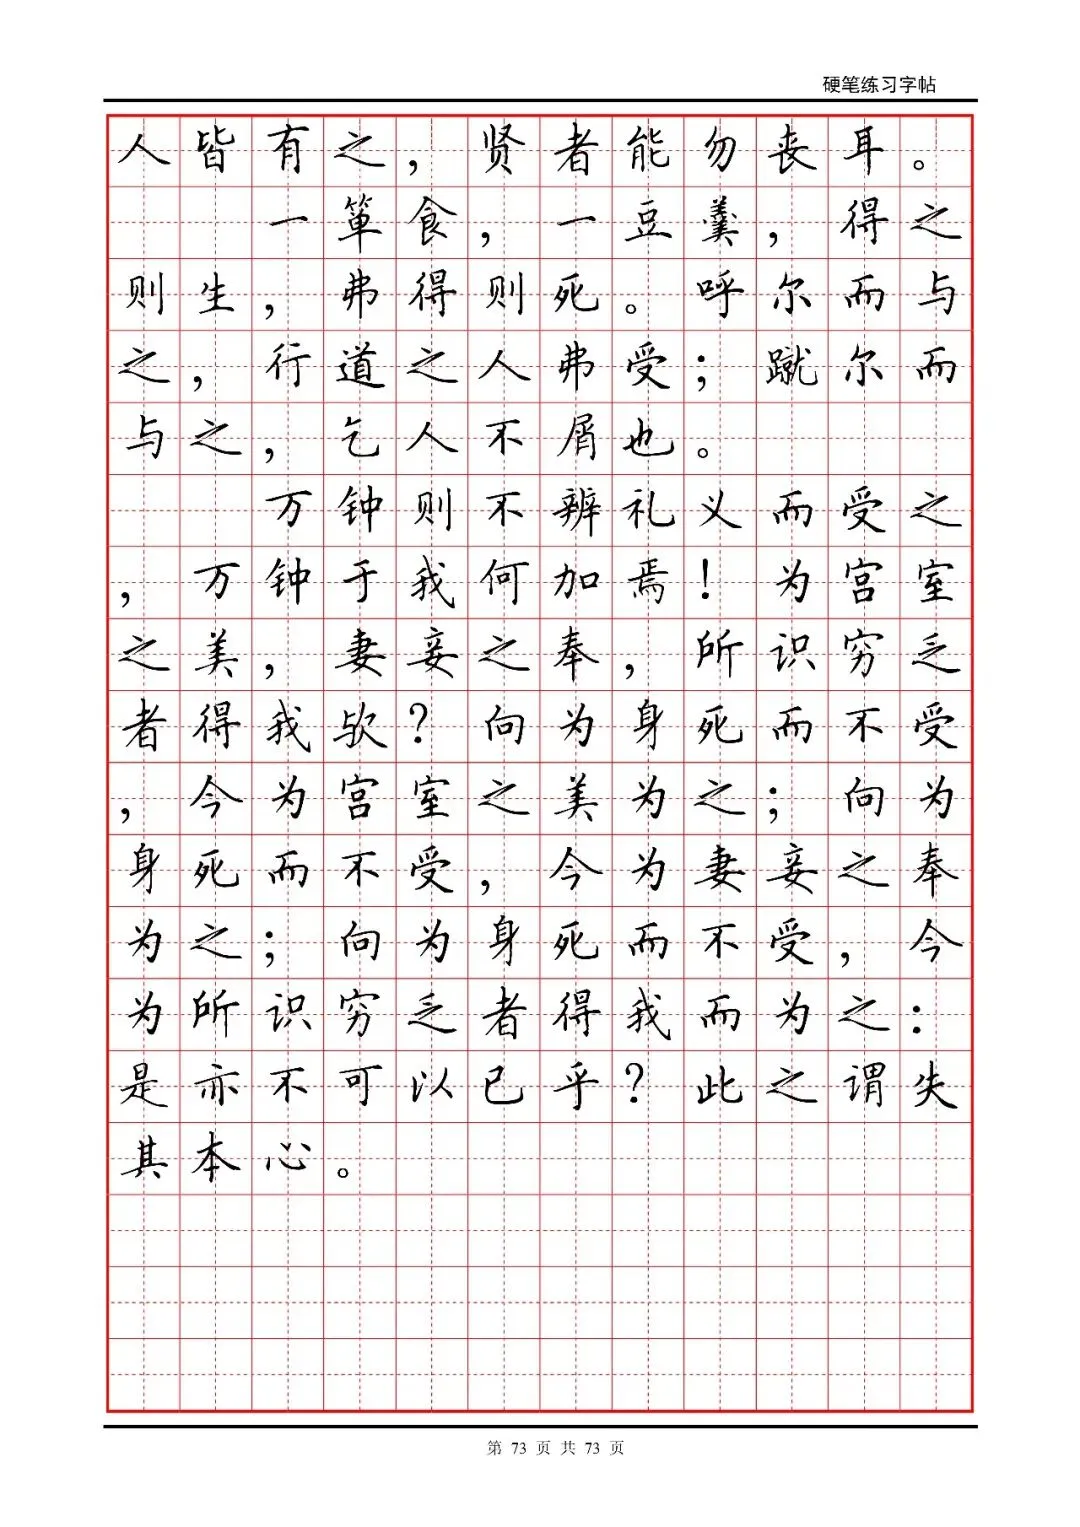 硬笔练习字帖
人皆有之，贤者能勿丧耳。
一箪食，一豆羹，得之
则生，弗得则死。呼尔而与
之，行道之人弗受；蹴尔而
与之，乞人不屑也。
万钟则不辨礼义而受之
，万钟于我何加焉！为宫室
之美，妻妾之奉，所识穷乏
者得我欤？向为身死而不受
，今为宫室之美为之；向为
身死而不受，今为妻妾之奉
为之；向为身死而不受，今
为所识穷乏者得我而为之：
是亦不可以已乎？此之谓失
其本心。
第 73 页 共 73 页